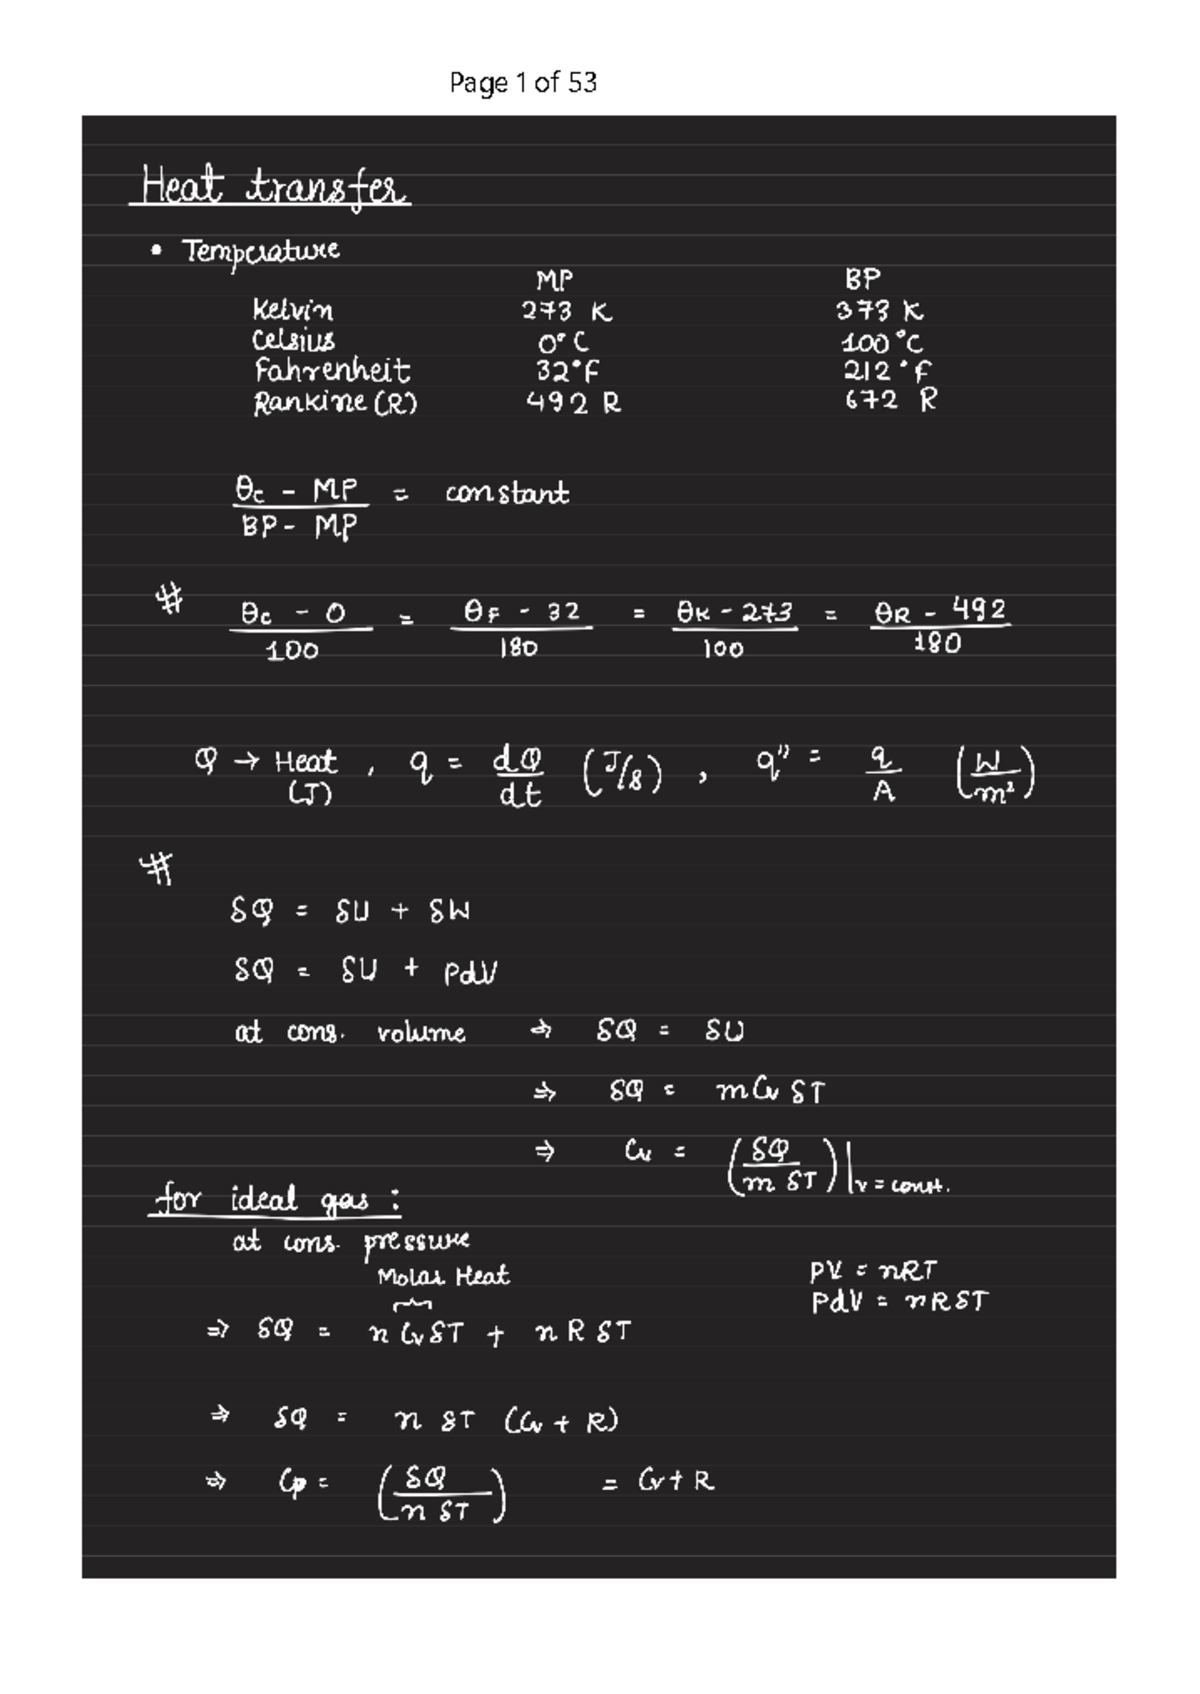 Page 1 of 53
Heat transfer
• Temperature
MP BP
Kelvin 273 K 373 K
Celsius 0°C 100°C
Fahrenheit 32°F 212°F
Rankine (R) 492 R 672 R
(θc - MP)/(BP - MP) = constant
# (θc - 0)/100 = (θF - 32)/180 = (θK - 273)/100 = (θR - 492)/180
Q → Heat (J), q = dQ/dt (J/s), q'' = q/A (W/m²)
#
δQ = δU + δW
δQ = δU + PdV
at cons. volume ⇒ δQ = δU
⇒ δQ = mCv δT
⇒ Cv = (δQ/m δT)|v = const.
for ideal gas :
at cons. pressure
Molar Heat PV = nRT
PdV = nRδT
⇒ δQ = n CvδT + n R δT
⇒ δQ = n δT (Cv + R)
⇒ Cp = (δQ/n δT) = Cv + R